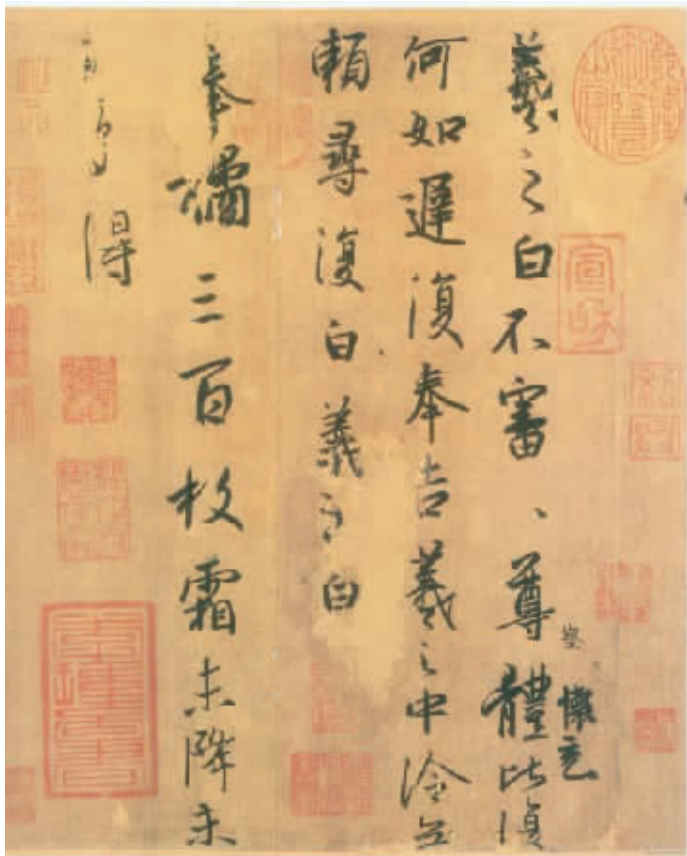 羲之白不審、尊體比復
察 懷充
何如遲復奉告羲之中冷無
賴尋復白羲之白
奉橘三百枚霜未降未
可多得
宣和